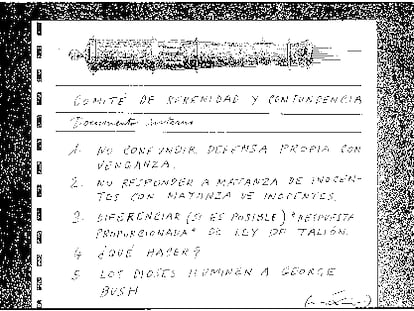 COMITÉ DE SERENIDAD Y CONTUNDENCIA
Documento interno
1. NO CONFUNDIR DEFENSA PROPIA CON
VENGANZA.
2. NO RESPONDER A MATANZA DE INOCEN-
TES CON MATANZA DE INOCENTES.
3. DIFERENCIAR (SI ES POSIBLE) "RESPUESTA
PROPORCIONADA" DE LEY DE TALIÓN.
4. ¿QUÉ HACER?
5. LOS DIOSES ILUMINEN A GEORGE
BUSH